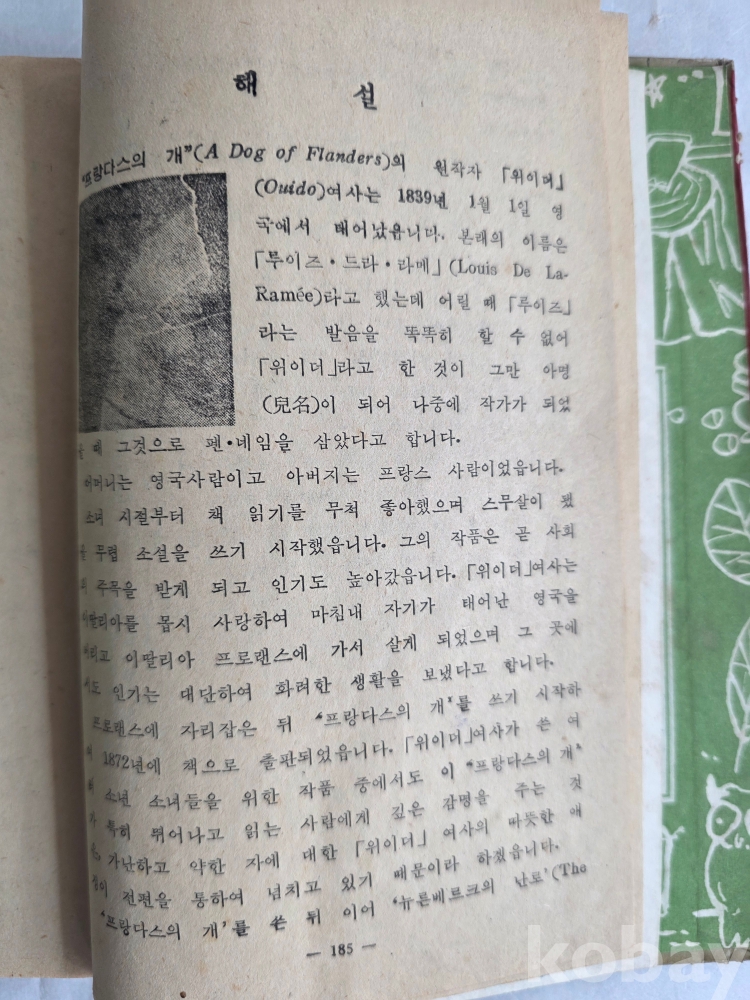 해 설
"프랑다스의 개"(A Dog of Flanders)의 원작자 「위이더」
(Ouido)여사는 1839년 1월 1일 영
국에서 태어났읍니다. 본래의 이름은
「루이즈·드라·라메」(Louis De La-
Ramée)라고 했는데 어릴 때 「루이즈」
라는 발음을 똑똑히 할 수 없어
「위이더」라고 한 것이 그만 아명
(兒名)이 되어 나중에 작가가 되었
을 때 그것으로 펜·네임을 삼았다고 합니다.
어머니는 영국사람이고 아버지는 프랑스 사람이었읍니다.
소녀 시절부터 책 읽기를 무척 좋아했으며 스무살이 됐
을 무렵 소설을 쓰기 시작했읍니다. 그의 작품은 곧 사회
의 주목을 받게 되고 인기도 높아갔읍니다. 「위이더」여사는
이딸리아를 몹시 사랑하여 마침내 자기가 태어난 영국을
버리고 이딸리아 프로랜스에 가서 살게 되었으며 그 곳에
서도 인기는 대단하여 화려한 생활을 보냈다고 합니다.
프로랜스에 자리잡은 뒤 "프랑다스의 개"를 쓰기 시작하
여 1872년에 책으로 출판되었읍니다. 「위이더」여사가 쓴 여
러 소년 소녀들을 위한 작품 중에서도 이 "프랑다스의 개"
가 특히 뛰어나고 읽는 사람에게 깊은 감명을 주는 것
은, 가난하고 약한 자에 대한 「위이더」 여사의 따뜻한 애
정이 전편을 통하여 넘치고 있기 때문이라 하겠읍니다.
'프랑다스의 개'를 쓴 뒤 이어 '뉴른베르크의 난로'(The
— 185 —
kobay